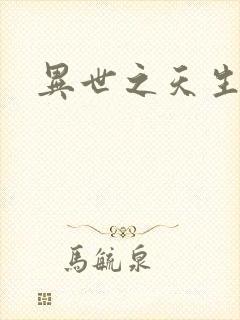 異世之天生
馬毓泉